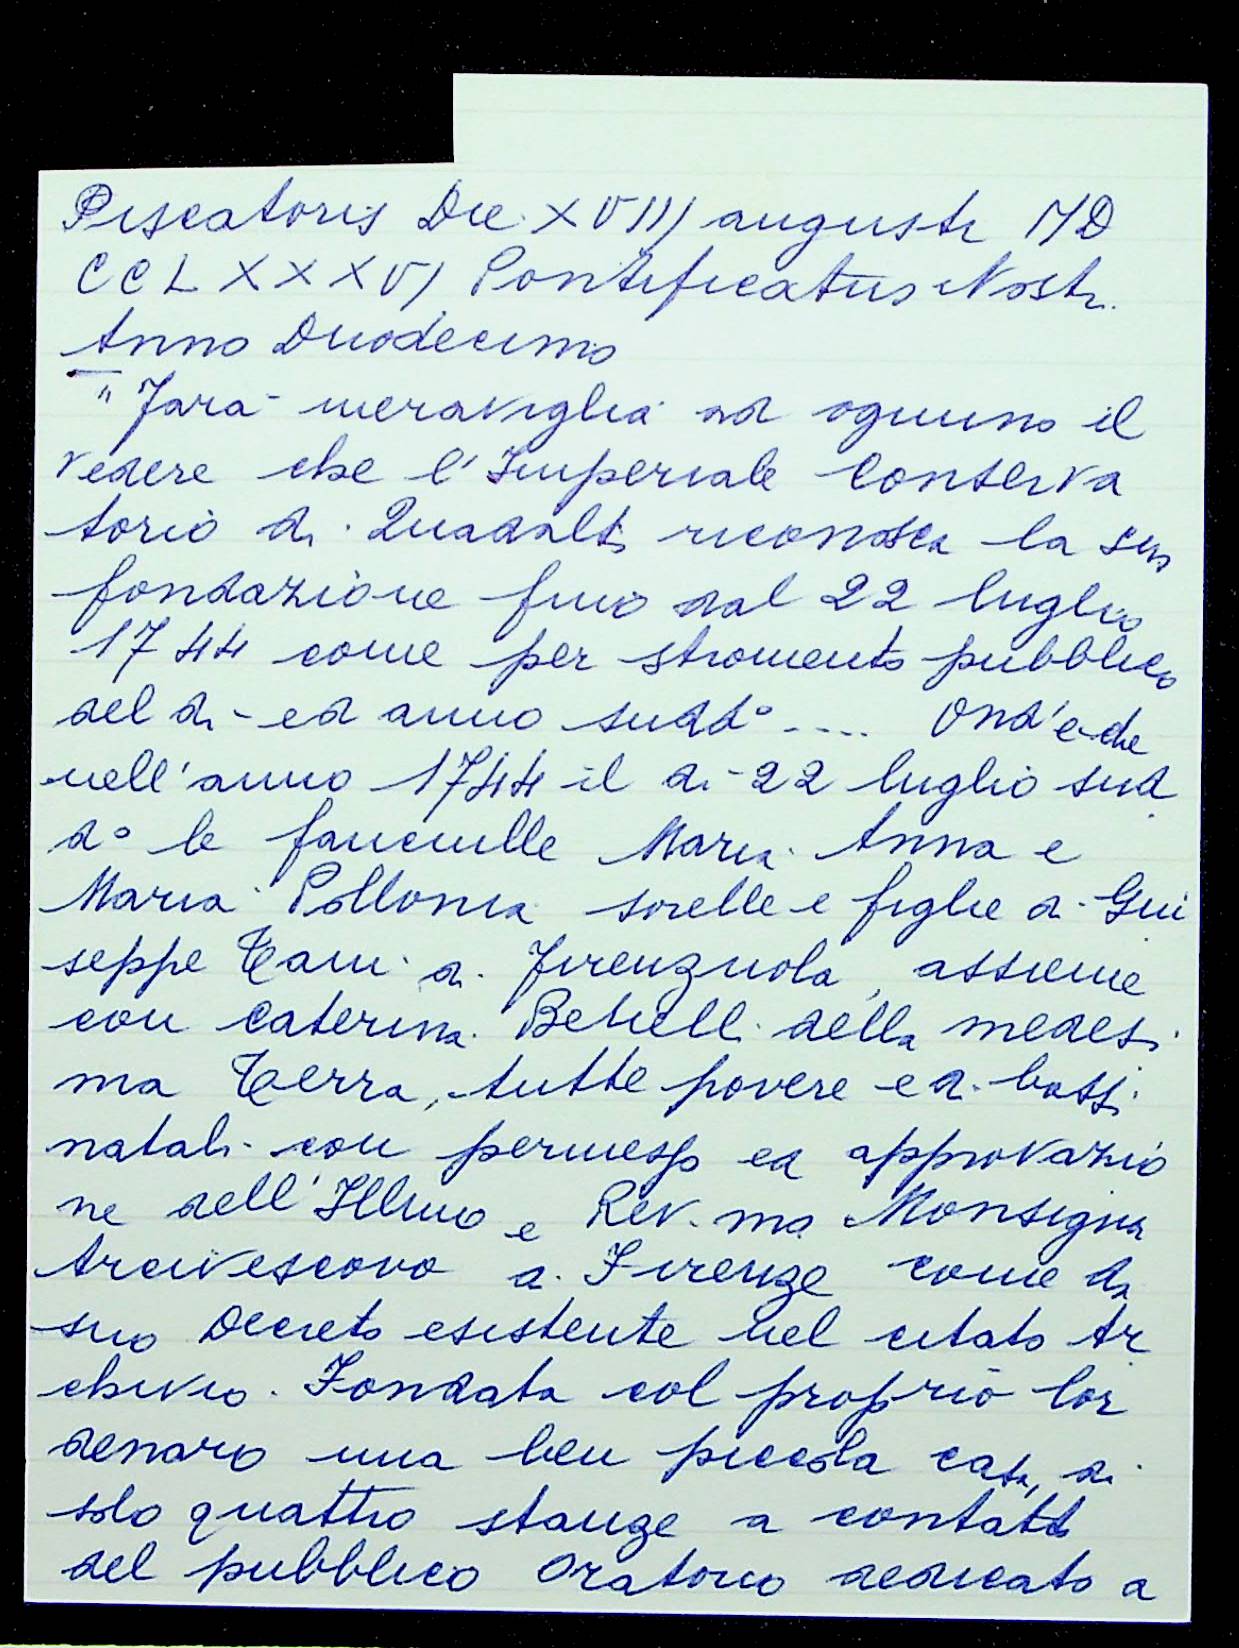 Piscatoris Die XVIII augusti MD
CCLXXXVI Pontificatus Nostri
Anno Duodecimo
"Farà meraviglia ad ognuno il
vedere che l'Imperiale Conserva
torio di Quadalti riconosca la sua
fondazione fino dal 22 luglio
1744 come per stromento pubblico
del dì ed anno sudd° .... Ond'è che
nell'anno 1744 il dì 22 luglio sud
d° le fanciulle Maria Anna e
Maria Pollonia sorelle e figlie di Giu
seppe Tani di Firenzuola, assieme
con Caterina della medesi
ma Terra, tutte povere e di bassi
natali con permesso ed approvazio
ne dell'Illmo e Rev.mo Monsignor
Arcivescovo di Firenze come da
suo Decreto esistente nel citato Ar
chivio. Fondata col proprio lor
denaro una ben piccola casa, di
solo quattro stanze a contatto
del pubblico Oratorio dedicato a